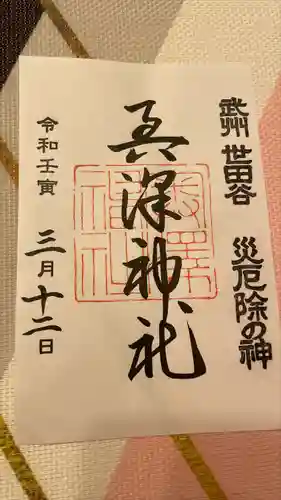 武州 世田谷 災厄除の神
奥澤神社
令和壬寅 三月十二日